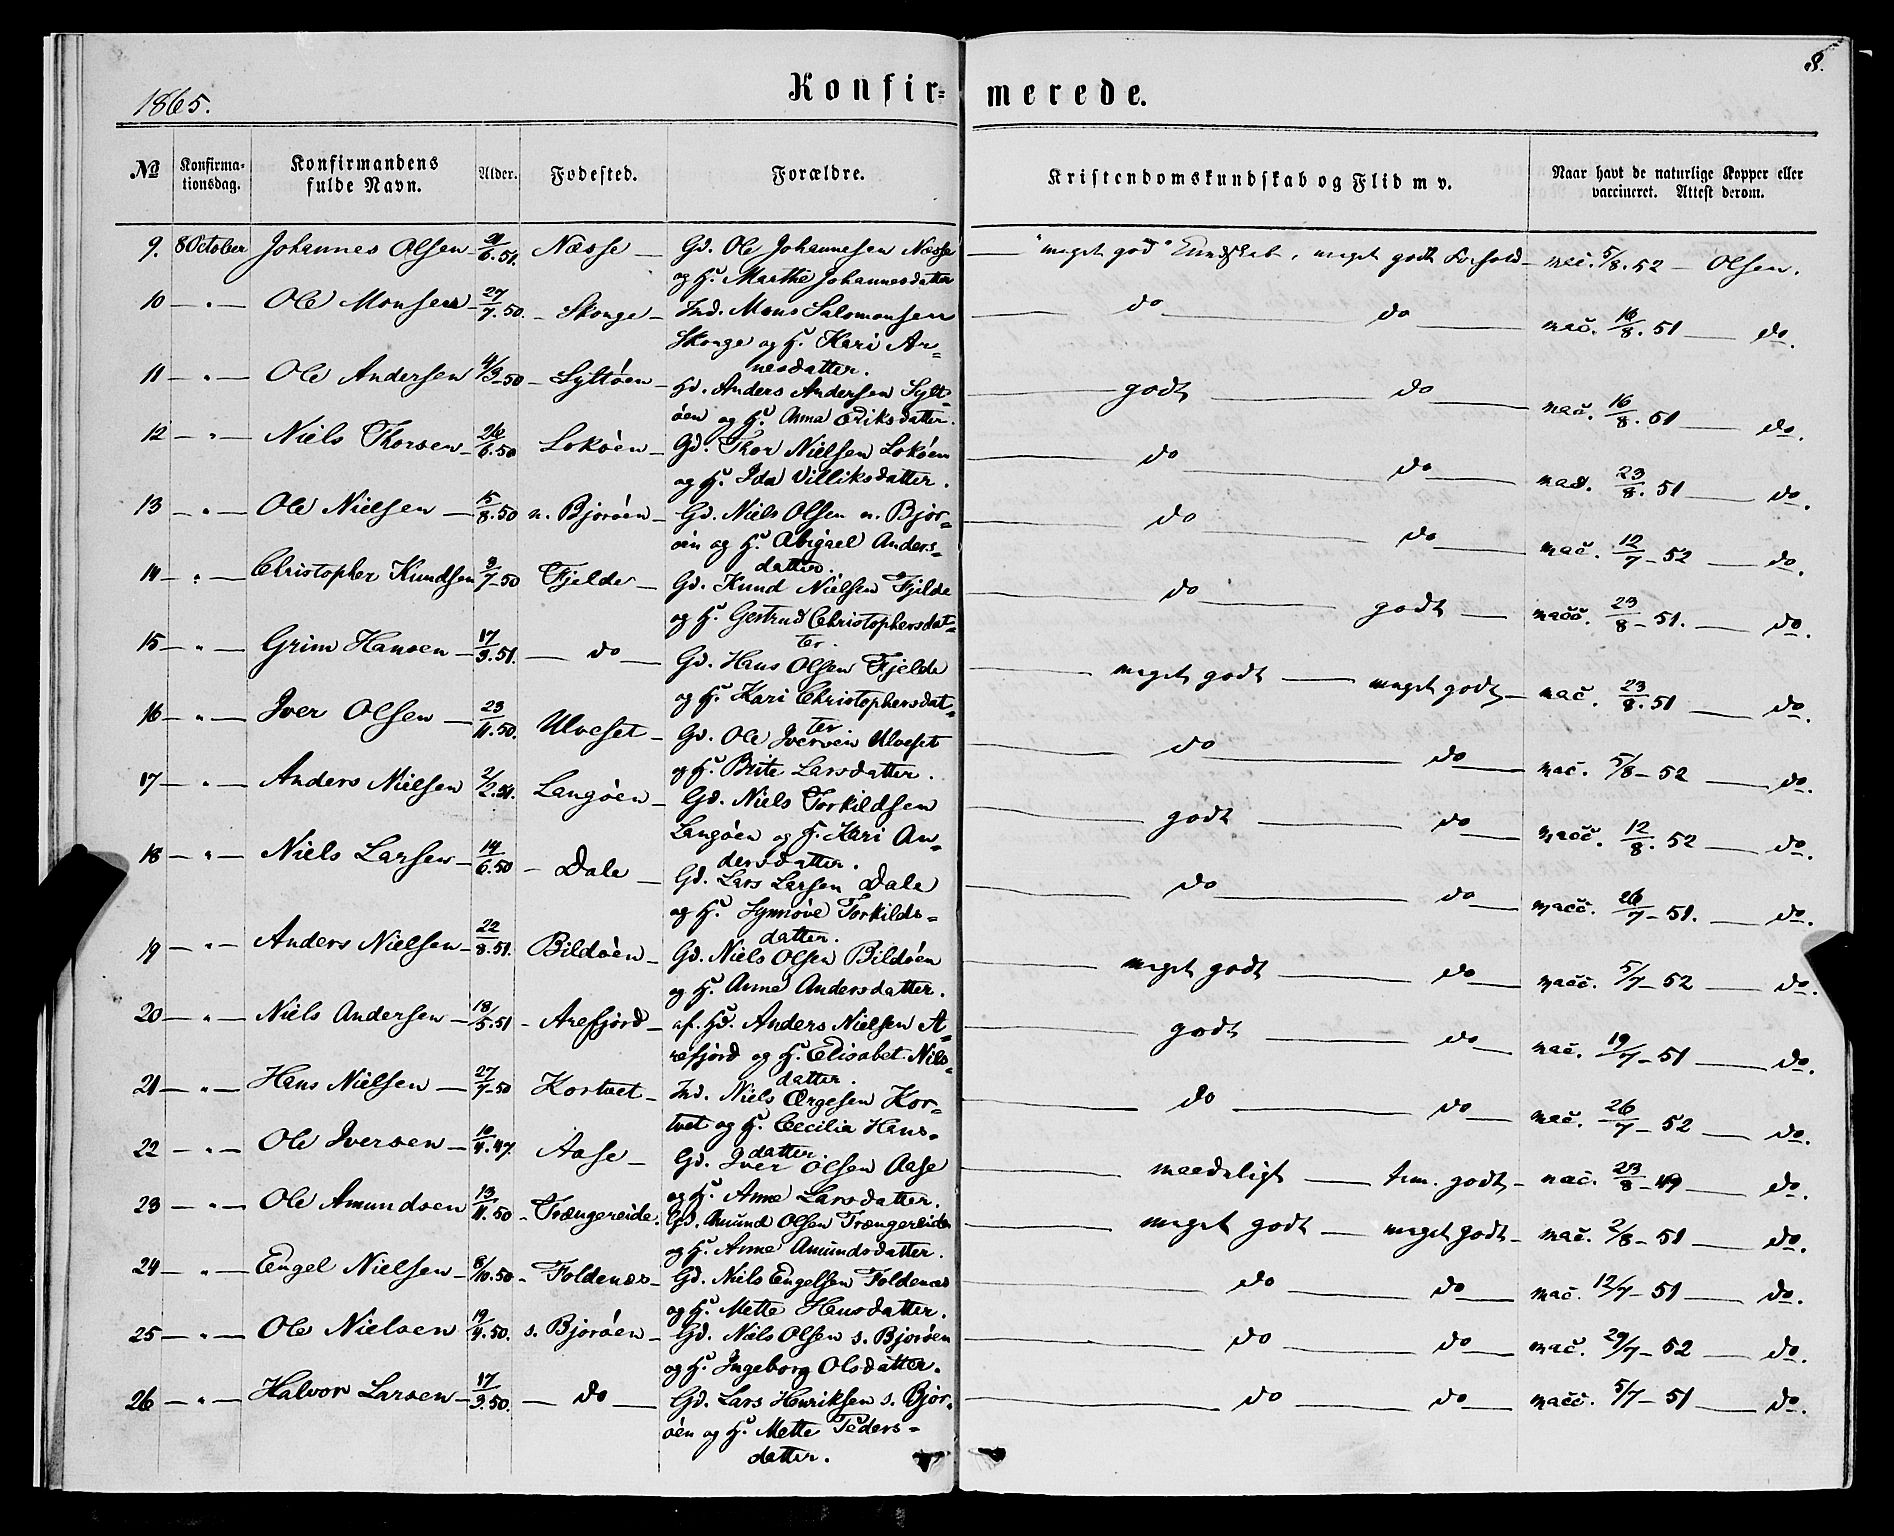 8.
1865.
Konfir- merede.
No Konfirma-tionsdag. Konfirmandens fulde Navn. Alder. Fødested. Forældre. Kristendomskundskab og Flid m v. Naar havt de naturlige Kopper eller vaccineret. Attest derom.
9. 8 October Johannes Olsen 6.51. Næsse Gd. Ole Johannesen Næsse "meget god" Kundskab, meget godt Forhold vac. 5/8.52 Olsen.
og H. Marthe Johannesdatter
10 " Ole Monsen 27/7.50. Skoge Ind. Mons Salomonsen do do vac. 16/8.51 do.
Skoge og H. Kari Ar-
nesdatter.
11 " Ole Andersen 4/9-50 Syltöen Gd. Anders Andersen Sylt- godt do vac. 16/8.51 do.
öen og H. Anna Eriksdatter.
12 " Niels Thorsen 26/6.50 Loköen Gd. Thor Nielsen Loköen do do vac. 23/8.51 do.
og H. Ida Villiksdatter.
13 " Ole Nielsen 15/8.50 n. Bjoröen Gd. Niels Olsen n. Bjor- do do vac. 12/7-52 do.
öen og H. Abigael Anders-
datter.
14 " Christopher Knudsen 7-50 Fjelde Gd. Knud Nielsen Fjelde do godt vacc. 23/8-51. do.
og H. Gertrud Christophersdat-
ter.
15 " Grim Hansen 17/3.51. do Gd. Hans Olsen Fjelde meget godt meget godt vac. 23/8.51 do.
og H. Kari Christophersdat-
ter
16 " Iver Olsen 23/11.50. Ulveset Gd. Ole Iversen Ulveset do do vac. 5/8-52 do.
og H. Brite Larsdatter.
17 " Anders Nielsen 2/2.51. Langöen Gd. Niels Torkildsen godt do vacc. 12/8.52 do.
Langöen og H. Kari An-
dersdatter.
18 " Niels Larsen 14/6.50 Dale Gd. Lars Larsen Dale do do vacc. 26/7-51. do.
og H. Synnöve Torkilds-
datter.
19 " Anders Nielsen 22/8.51. Bildöen Gd. Niels Olsen Bildöen meget godt do vacc. 5/7-52 do.
og H. Anne Andersdatter.
20 " Niels Andersen 18/5.51 Arefjord af. Gd. Anders Nielsen A- godt do vac. 19/7-51 do.
refjord og H. Elisabet Nils-
datter.
21 " Hans Nielsen 27/7-50 Kortvet Ind. Niels Ørgesen Kor- do do vac. 26/7-52 do.
tvet og H. Cecilia Hans-
datter.
22 " Ole Iversen 10/4.47. Aase Gd. Iver Olsen Aase maadeligt tem. godt vac. 23/8-49 do.
og H. Anne Larsdatter.
23 " Ole Amundsen 13/11.50 Trængereide. Gd. Amund Olsen Trængereide meget godt meget godt vac. 2/8-51 do.
og H. Anne Amundsdatter.
24 " Engel Nielsen 8/10.50 Foldenæs Gd. Niels Engelsen Foldenæs do do vac. 12/7-51 do.
og H. Mette Hansdatter.
25 " Ole Nielsen 19/4.50. s. Bjoröen Gd. Niels Olsen s. Bjoröen do do vac. 29/7-52 do.
og H. Ingeborg Olsdatter.
26 " Halvor Larsen 17/3.50. do Gd. Lars Henriksen s. Bjor- do do vacc. 5/7-51 do.
öen og H. Mette Peders-
datter.